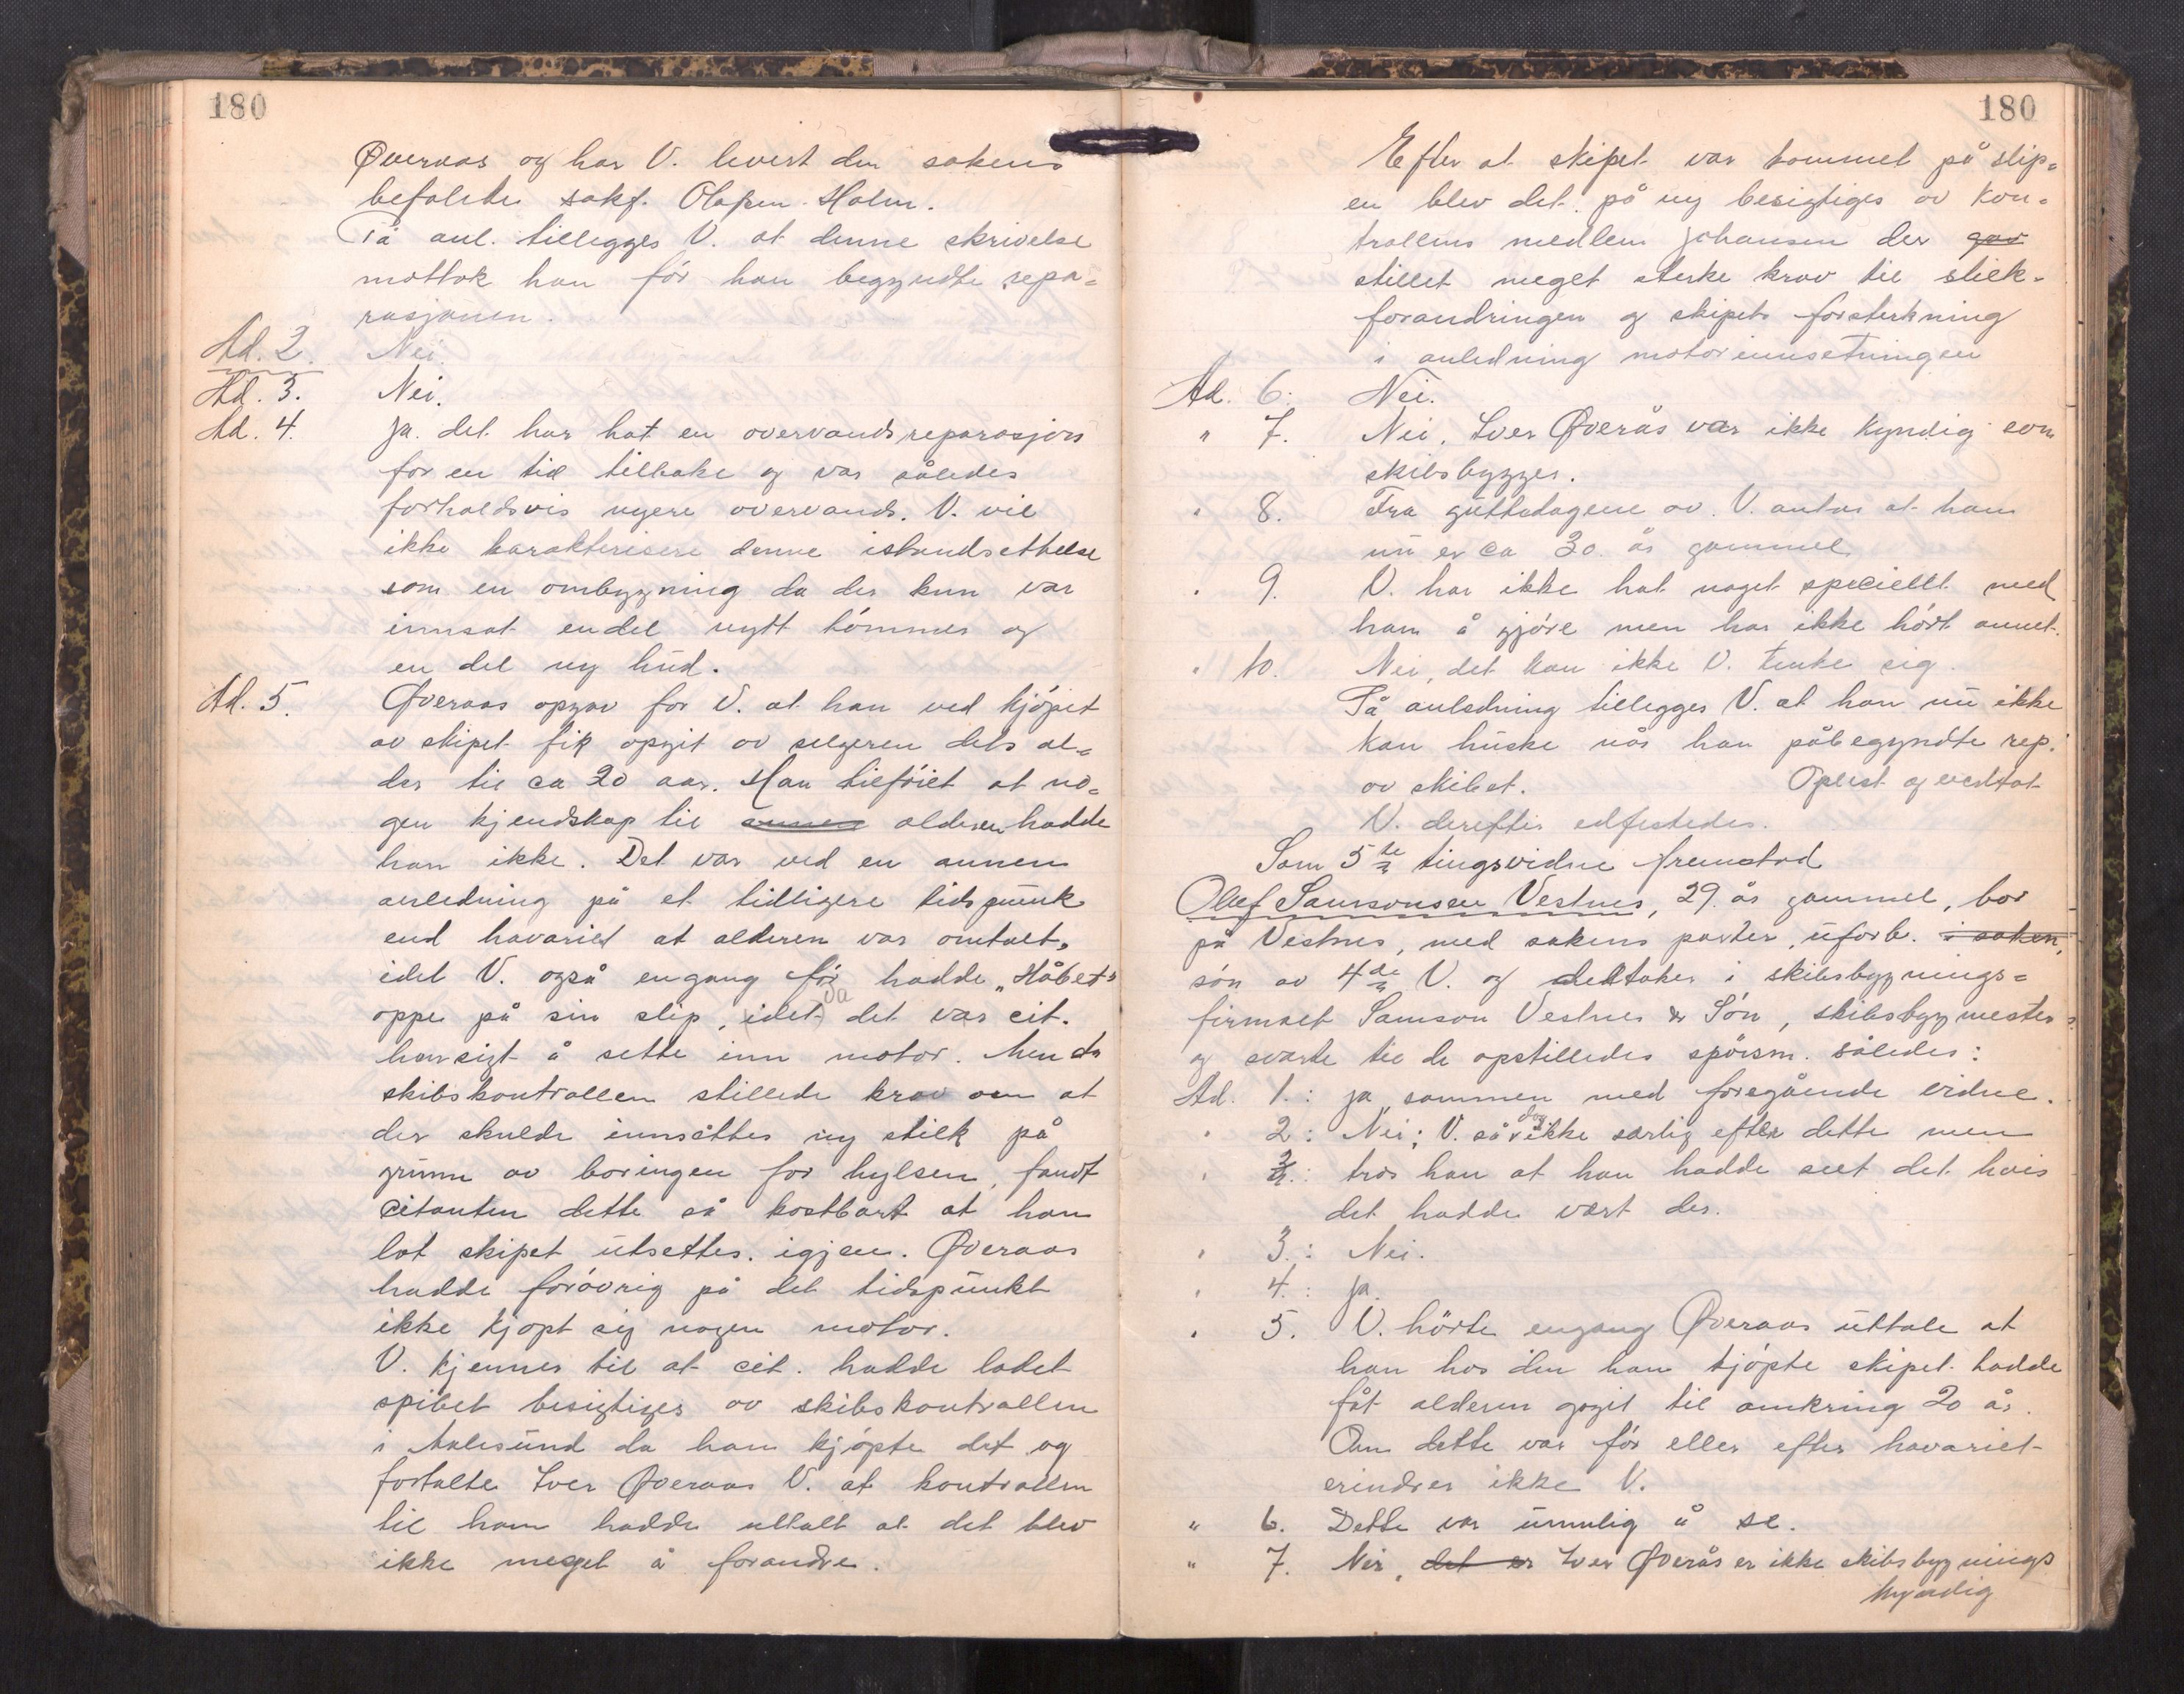 180
Øveraas og har V. levert den sakens
befalede sakf. Olafsen-Holm.
På anl. tillegges V. at denne skrivelse
mottok han før han begyndte repa-
rasjonen.
Ad. 2. Nei.
Ad. 3. Nei.
Ad. 4. Ja. det har hat en overvandsreparasjon
for en tid tilbake og var således
forholdsvis nyere overvands. V. vil
ikke karakterisere denne istandsettelse
som en ombygning da der kun var
innsat endel nytt tømmer og
en del ny hud.
Ad. 5. Øveraas opgav for V. at han ved kjøpet
av skipet fik opgit av selgeren dets al-
der til ca 20 aar. Han tilføiet at no-
gen kjendskap til alderen hadde
han ikke. Det var ved en annen
anledning på et tidligere tidspunk
end havariet at alderen var omtalt,
idet V. også engang før hadde "Håbet"
oppe på sin slip, idet da det var cit.
hensigt å sette inn motor. Men da
skibskontrollen stillede krav om at
der skulde innsættes ny stilk på
grunn av boringen for hylsen, fandt
citanten dette så kostbart at han
lot skipet utsettes igjen. Øveraas
hadde forøvrig på det tidspunkt
ikke kjøpt sig nogen motor.
V. kjenner til at cit. hadde ladet
spibet besigtiges av skibskontrollen
i Aalesund da han kjøpte det og
fortalte Iver Øveraas V. at kontrollen
til ham hadde uttalt at det blev
ikke meget å forandre.
180
Efter at skipet var kommet på slip-
en blev det på ny besigtiges av Kon-
trollens medlem Johansen der gav
stillet meget sterke krav til stilk-
forandringen og skipets forsterkning
i anledning motorinnsetningen
Ad. 6: Nei.
" 7. Nei, Iver Øverås var ikke kyndig som
skibsbygger.
" 8. Fra guttedagene av. V. antar at han
nu er ca 30 år gammel.
" 9. V. har ikke hat noget speciellt med
ham å gjøre men har ikke hørt annet.
" 10. Nei, det kan ikke V. tenke sig.
På anledning tillegges V. at han nu ikke
kan huske når han påbegyndte rep.
av skibet. Oplest og vedtat
V. derefter edfestedes.
Som 5te tingsvidne fremstod
Olef Samsonsen Vestnes, 29 år gammel, bor
på Vestnes, med sakens parter uforb. i saken,
søn av 4de V. og deltaker i skibsbygnings-
firmaet Samson Vestnes & Søn, skibsbygmester
og svarte til de opstilledes spørsm. således:
Ad. 1.: ja sammen med foregående vidne.
" 2: Nei; V. så dog ikke særlig efter dette men
" 2.: tror han at han hadde seet det hvis
det hadde vært der.
" 3.: Nei.
" 4.: ja.
" 5. V. hørte engang Øveraas uttale at
han hos den han kjøpte skipet hadde
fåt alderen opgit til omkring 20 år.
Om dette var før eller efter havariet
erindrer ikke V.
" 6. Dette var umulig å se.
" 7. Nei, det er Iver Øverås er ikke skibsbygnings
kyndig